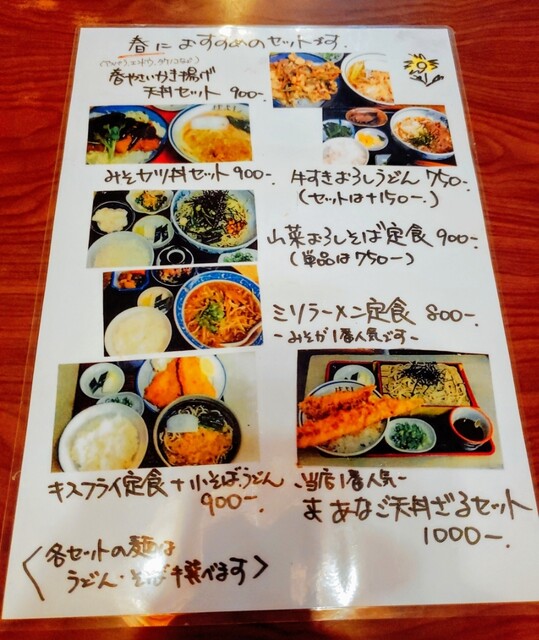 春におすすめのセットです。
春やさいかき揚げ
天丼セット 900-
みそカツ丼セット 900-
牛すきおろしうどん 750-
(セットは+150-)
山菜おろしそば定食 900-
(単品は750-)
ミソラーメン定食 800-
-みそが1番人気です-
キスフライ定食+小そばうどん
900-
当店1番人気-
まあなご天丼ざるセット
1000-
<各セットの麺は
うどん・そば 選べます>